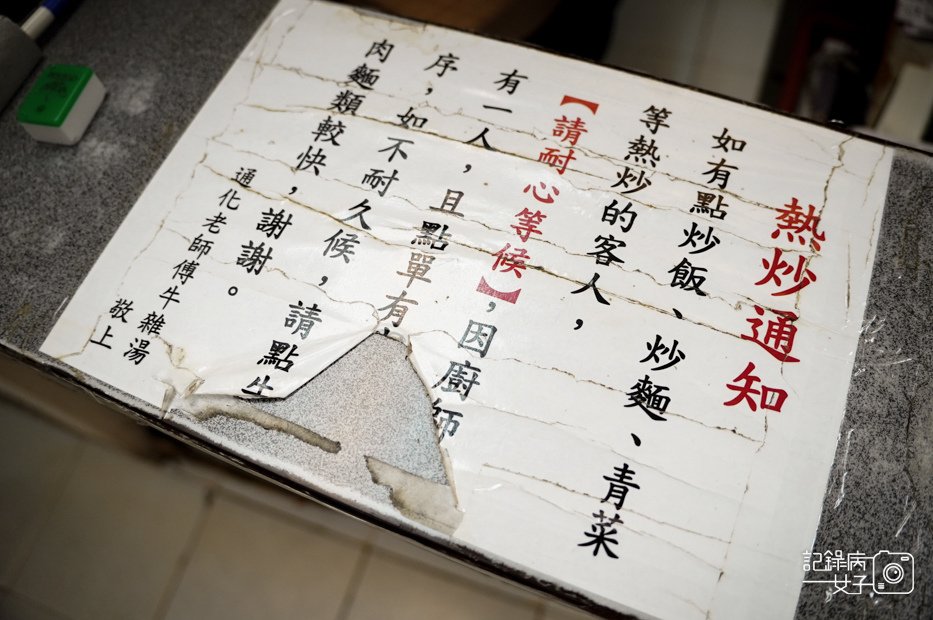 熱炒通知
如有點炒飯、炒麵、青菜
等熱炒的客人，
【請耐心等候】，因廚師
有一人，且點單有
序，如不耐久候，請點牛
肉麵類較快，謝謝。
通化老師傅牛雜湯
敬上
記錄病
女子